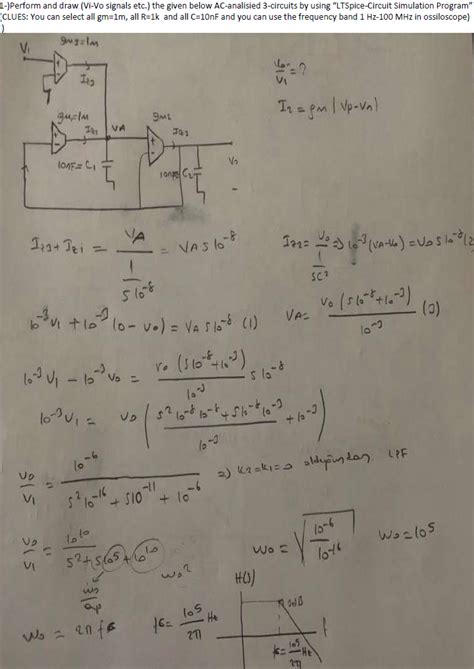 1-)Perform and draw (Vi-Vo signals etc.) the given below AC-analisied 3-circuits by using "LTSpice-Circuit Simulation Program"
(CLUES: You can select all gm=1m, all R=1k and all C=10nF and you can use the frequency band 1 Hz-100 MHz in ossiloscope)
)
gm3=1m
Vi
Iz3
Vo/Vi = ?
Iz = gm (Vp-Vn)
gm1=1m
Iz1
VA
gm2
Iz2
10nF=C1
10nF C2
Vo
Iz3+Iz1 = VA / (1 / s10^-8) = VA s10^-8
Iz2 = Vo / (1 / sC2) => 10^-3 (VA-Vo) = Vo s10^-8 (2)
10^-3 Vi + 10^-3 (0-Vo) = VA s10^-8 (1)
VA = Vo (s10^-8+10^-3) / 10^-3
10^-3 Vi - 10^-3 Vo = Vo (s10^-8+10^-3) / 10^-3 s10^-8
10^-3 Vi = Vo ( (s^2 10^-8 10^-8 + s10^-8 10^-3) / 10^-3 + 10^-3 )
Vo/Vi = 10^-6 / (s^2 10^-16 + s10^-11 + 10^-6) => K2=K1=0 olduğundan LPF
Vo/Vi = 10^10 / (s^2 + s10^5 + 10^10)
wo/Qp
wo^2
wo = √(10^-6 / 10^-16)
wo = 10^5
H(J)
wo = 2π fo
fo = 10^5 / 2π Hz
3dB
f
fo = 10^5 / 2π Hz